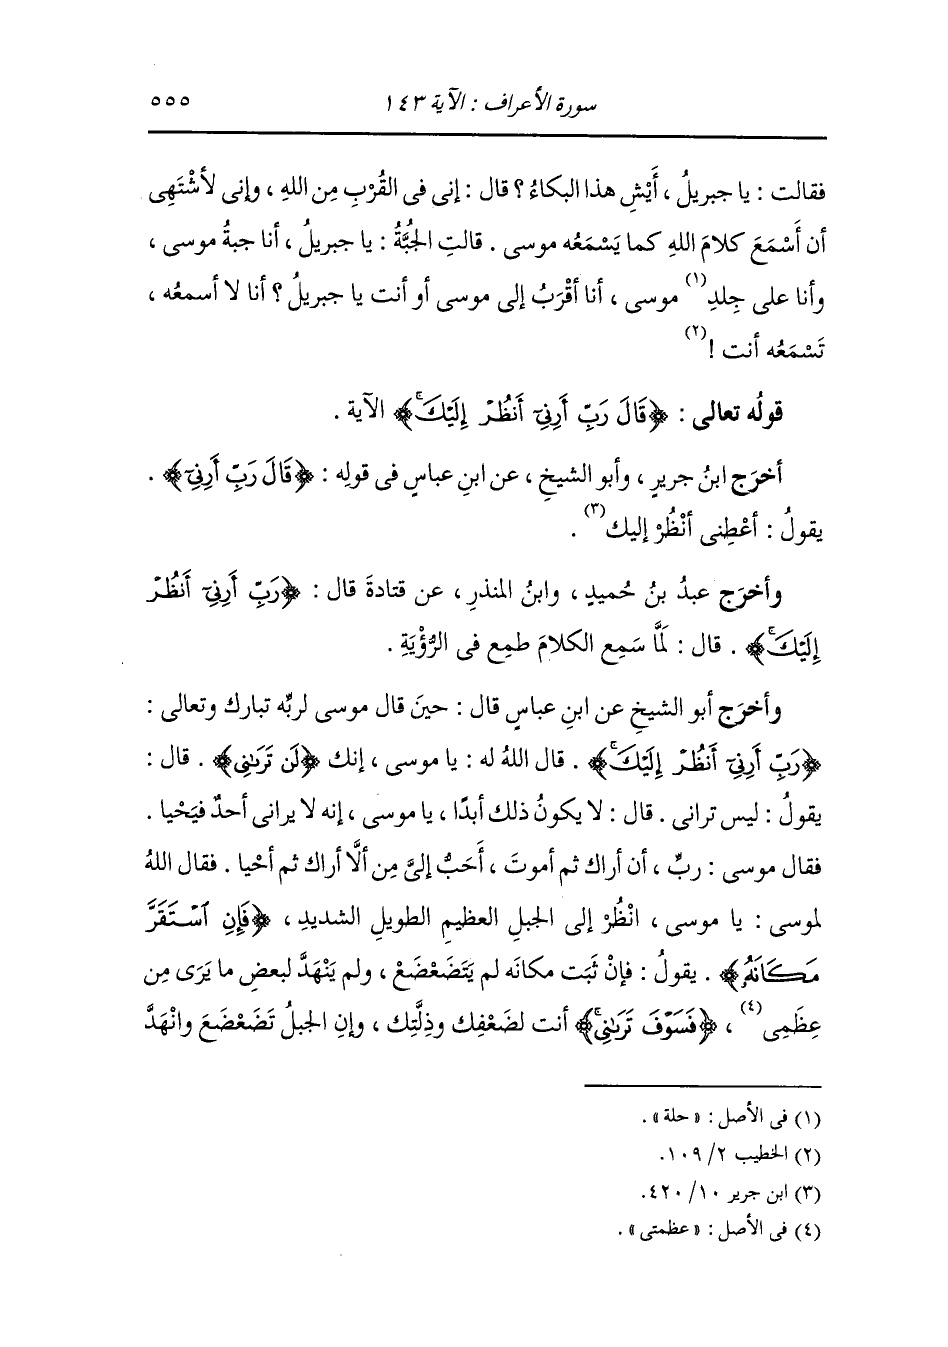 سورة الأعراف : الآية ١٤٣
٥٥٥
فقالت : يا جبريلُ ، أَيْشِ هذا البكاءُ ؟ قال : إنى فى القُرْبِ مِن اللهِ ، وإنى لأَشْتَهِى
أن أَسْمَعَ كلامَ اللهِ كما يَسْمَعُه موسى . قالتِ الجُبَّةُ : يا جبريلُ ، أنا جبةُ موسى ،
وأنا على جِلدِ(١) موسى ، أنا أقْرَبُ إلى موسى أو أنت يا جبريلُ ؟ أنا لا أسمعُه ،
تَسْمَعُه أنت !(٢)
قولُه تعالى : ﴿قَالَ رَبِّ أَرِنِىٓ أَنظُرْ إِلَيْكَۚ﴾ الآية .
أخرَج ابنُ جريرٍ ، وأبو الشيخِ ، عن ابنِ عباسٍ فى قولِه : ﴿قَالَ رَبِّ أَرِنِىٓ﴾ .
يقولُ : أعْطِنى أنْظُرْ إليك(٣) .
وأخرَج عبدُ بنُ حُميدٍ ، وابنُ المنذرِ ، عن قتادةَ قال : ﴿رَبِّ أَرِنِىٓ أَنظُرْ
إِلَيْكَۚ﴾ . قال : لَمَّا سَمِع الكلامَ طمِع فى الرُّؤْيَةِ .
وأخرَج أبو الشيخِ عن ابنِ عباسٍ قال : حينَ قال موسى لربِّه تبارك وتعالى :
﴿رَبِّ أَرِنِىٓ أَنظُرْ إِلَيْكَۚ﴾ . قال اللهُ له : يا موسى ، إنك ﴿لَن تَرَىٰنِى﴾ . قال :
يقولُ : ليس ترانى . قال : لا يكونُ ذلك أبدًا ، يا موسى ، إنه لا يرانى أحدٌ فيَحْيا .
فقال موسى : ربِّ ، أن أراك ثم أموتَ ، أَحَبُّ إلىَّ مِن ألَّا أراك ثم أحْيا . فقال اللهُ
لموسى : يا موسى ، انْظُرْ إلى الجبلِ العظيمِ الطويلِ الشديدِ ، ﴿فَإِنِ ٱسْتَقَرَّ
مَكَانَهُۥ﴾ . يقولُ : فإنْ ثَبَت مكانَه لم يَتَضَعْضَعْ ، ولم يَنْهَدَّ لبعضِ ما يَرَى مِن
عِظَمِى(٤) ، ﴿فَسَوْفَ تَرَىٰنِىۚ﴾ أنت لضَعْفِك وذِلَّتِك ، وإنِ الجبلُ تَضَعْضَعَ وانْهَدَّ
(١) فى الأصل : « حلة » .
(٢) الخطيب ٢/ ١٠٩.
(٣) ابن جرير ١٠/ ٤٢٠.
(٤) فى الأصل : « عظمتى » .